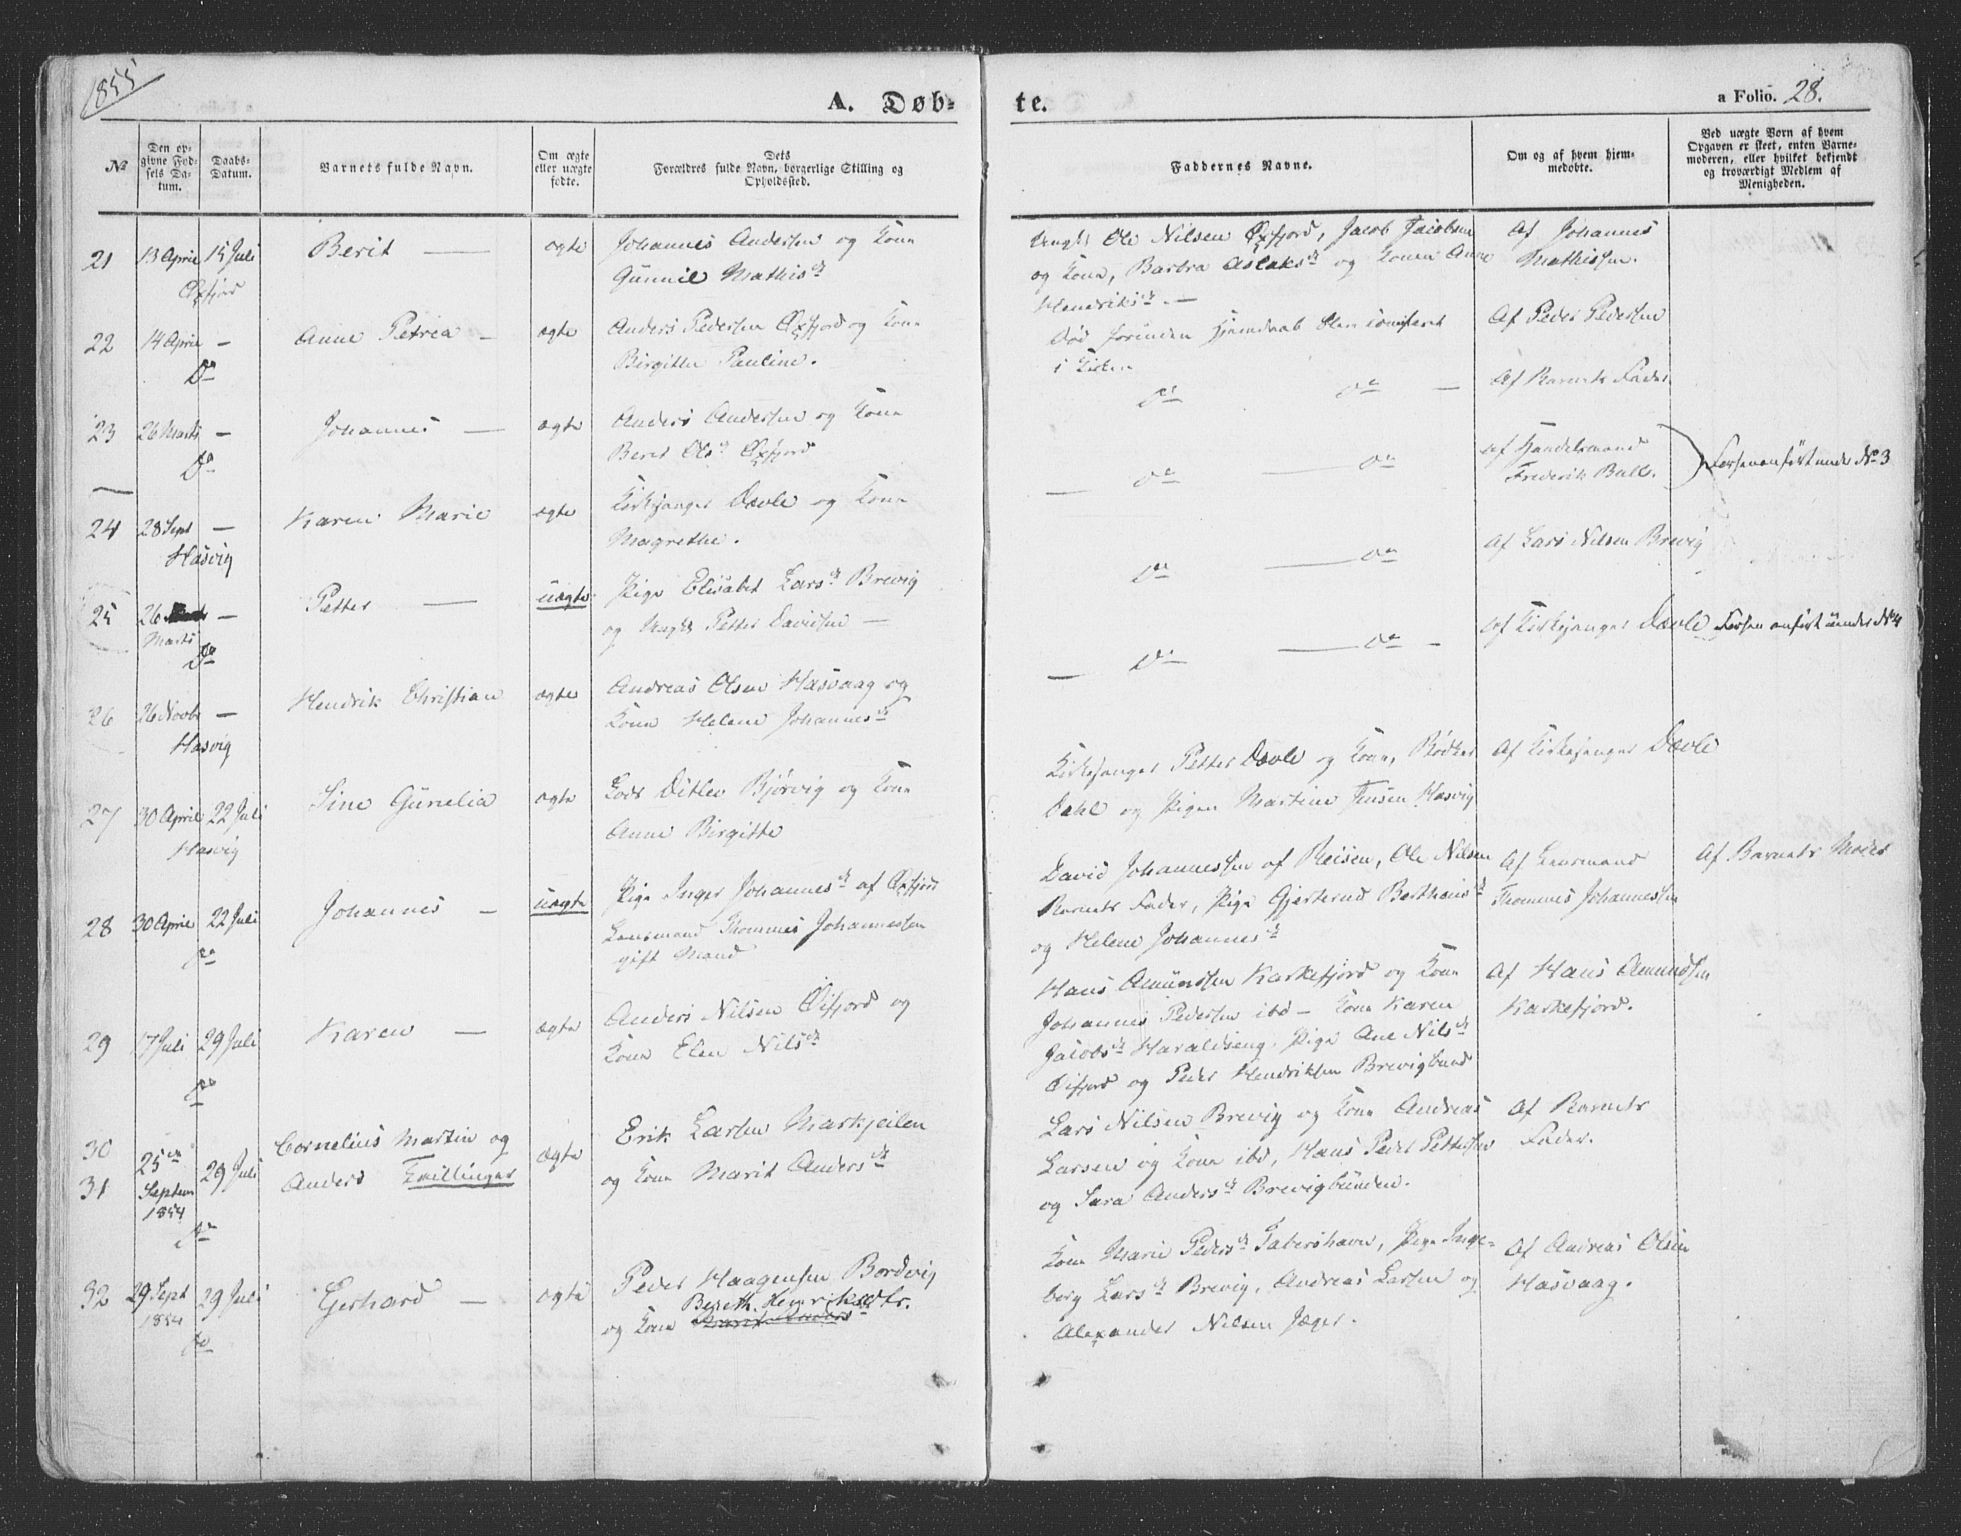 1855
A. Døb-
te.
a Folio. 28.
№
Den op-
givne Fød-
sels Da-
tum.
Daabs-
Datum.
Varnets fulde Navn.
Om ægte
eller uægte
fødte.
Dets
Forældres fulde Navn, borgerlige Stilling og
Opholdssted.
Faddernes Navne.
Om og af hvem hjem-
medøbte.
Ved uægte Born af hvem
Opgaven er skeet, enten Barne-
moderen, eller hvilket bekjendt
og troværdigt Medlem af
Menigheden.
21 13 April 15 Juli Berit — ægte Johannes Andersen og Kone
Øxfjord Gunnil Mathisd
Ungk Ole Nilsen Øxfjord, Jacob Jacobsen
og Kone, Barbra Aslaksd og Konen Anne
Hendriksd. —
Af Johannes
Mathissen.
22 14 April — Anne Petrea — ægte Anders Pedersen Øxfjord og Kone
Do Birgitte Pauline.
Død forinden Hjemdaab blev
i Kirken
Af Peder Pedersen
23 26 Marts — Johannes — ægte Anders Andersen og Kone
Do Berit Olsd Øxfjord
Do Do —
Af Barnets Fader
24 28 Sept — Karen Marie ægte Kirkesanger Dævle og Kone
Hasvig Magrethe.
— Do — Do
Af Handelsmand
Frederik Bull.
Forsen anført under No 3
25 26 — Petter — uægte Pige Elisabet Larsd Brevig
Marts og Ungk Petter Davidsen —
Do
Do — Do
Af Lars Nilsen Brevig
26 26 Novbr — Hendrik Christian ægte Andreas Olsen Hasvaag og
Hasvig Kone Helene Johannesd
— Do — Do —
Af Kirkesanger Dævle Forsen anført under No 4
27 30 April 22 Juli Sine Gunelia ægte Lods Ditlev Bjørvig og Kone
Hasvig Anne Birgitte
Kirkesanger Petter Dævle og Kone, Bødker
Dahl og Pigen Martine Jensen Hasvig
Af Kirkesanger Dævle
28 30 April 22 Juli Johannes — uægte Pige Inger Johannesd af Øxfjord
Do Lensmand Thommes Johannessen
gift Mand
David Johannessen af Reisen, Ole Nilsen
Barnets Fader, Pige Gjertrud Barthaisd
og Helene Johannesd
Af Lensmand
Thommes Johannessen
Af Barnets Moder
29 17 Juli 29 Juli Karen — ægte Anders Nilsen Øifjord og
Do Kone Elen Nilsd
Hans Amundsen Karkefjord og Kone
Johannes Pedersen ibd — Kone Karen
Jacobsd Haraldseng, Pige Ane Nilsd
Øifjord og Peder Hendriksen Brevigbund
Af Hans Amundsen
Karkefjord.
30 Cornelius Martin og
31 25de Septem 1854 29 Juli Anders Tvillinger ægte Erik Larsen Markjeilen
Do og Kone Marit Andersd
Lars Nilsen Brevig og Kone Andreas
Larsen og Kone ibd, Hans Peder Pettersen
og Sara Andersd Brevigbunden.
Af Barnets
Fader.
32 29 Sept 29 Juli Gerhard — ægte Peder Haagensen Bordvig
1854 Bereth Henriksdtr.
Do og Kone Marit Andersd
Kone Marie Pedersd Fabershavn, Pige Inge-
borg Larsd Brevig, Andreas Larsen og
Alexander Nilsen Jæger.
Af Andreas Olsen
Hasvaag.